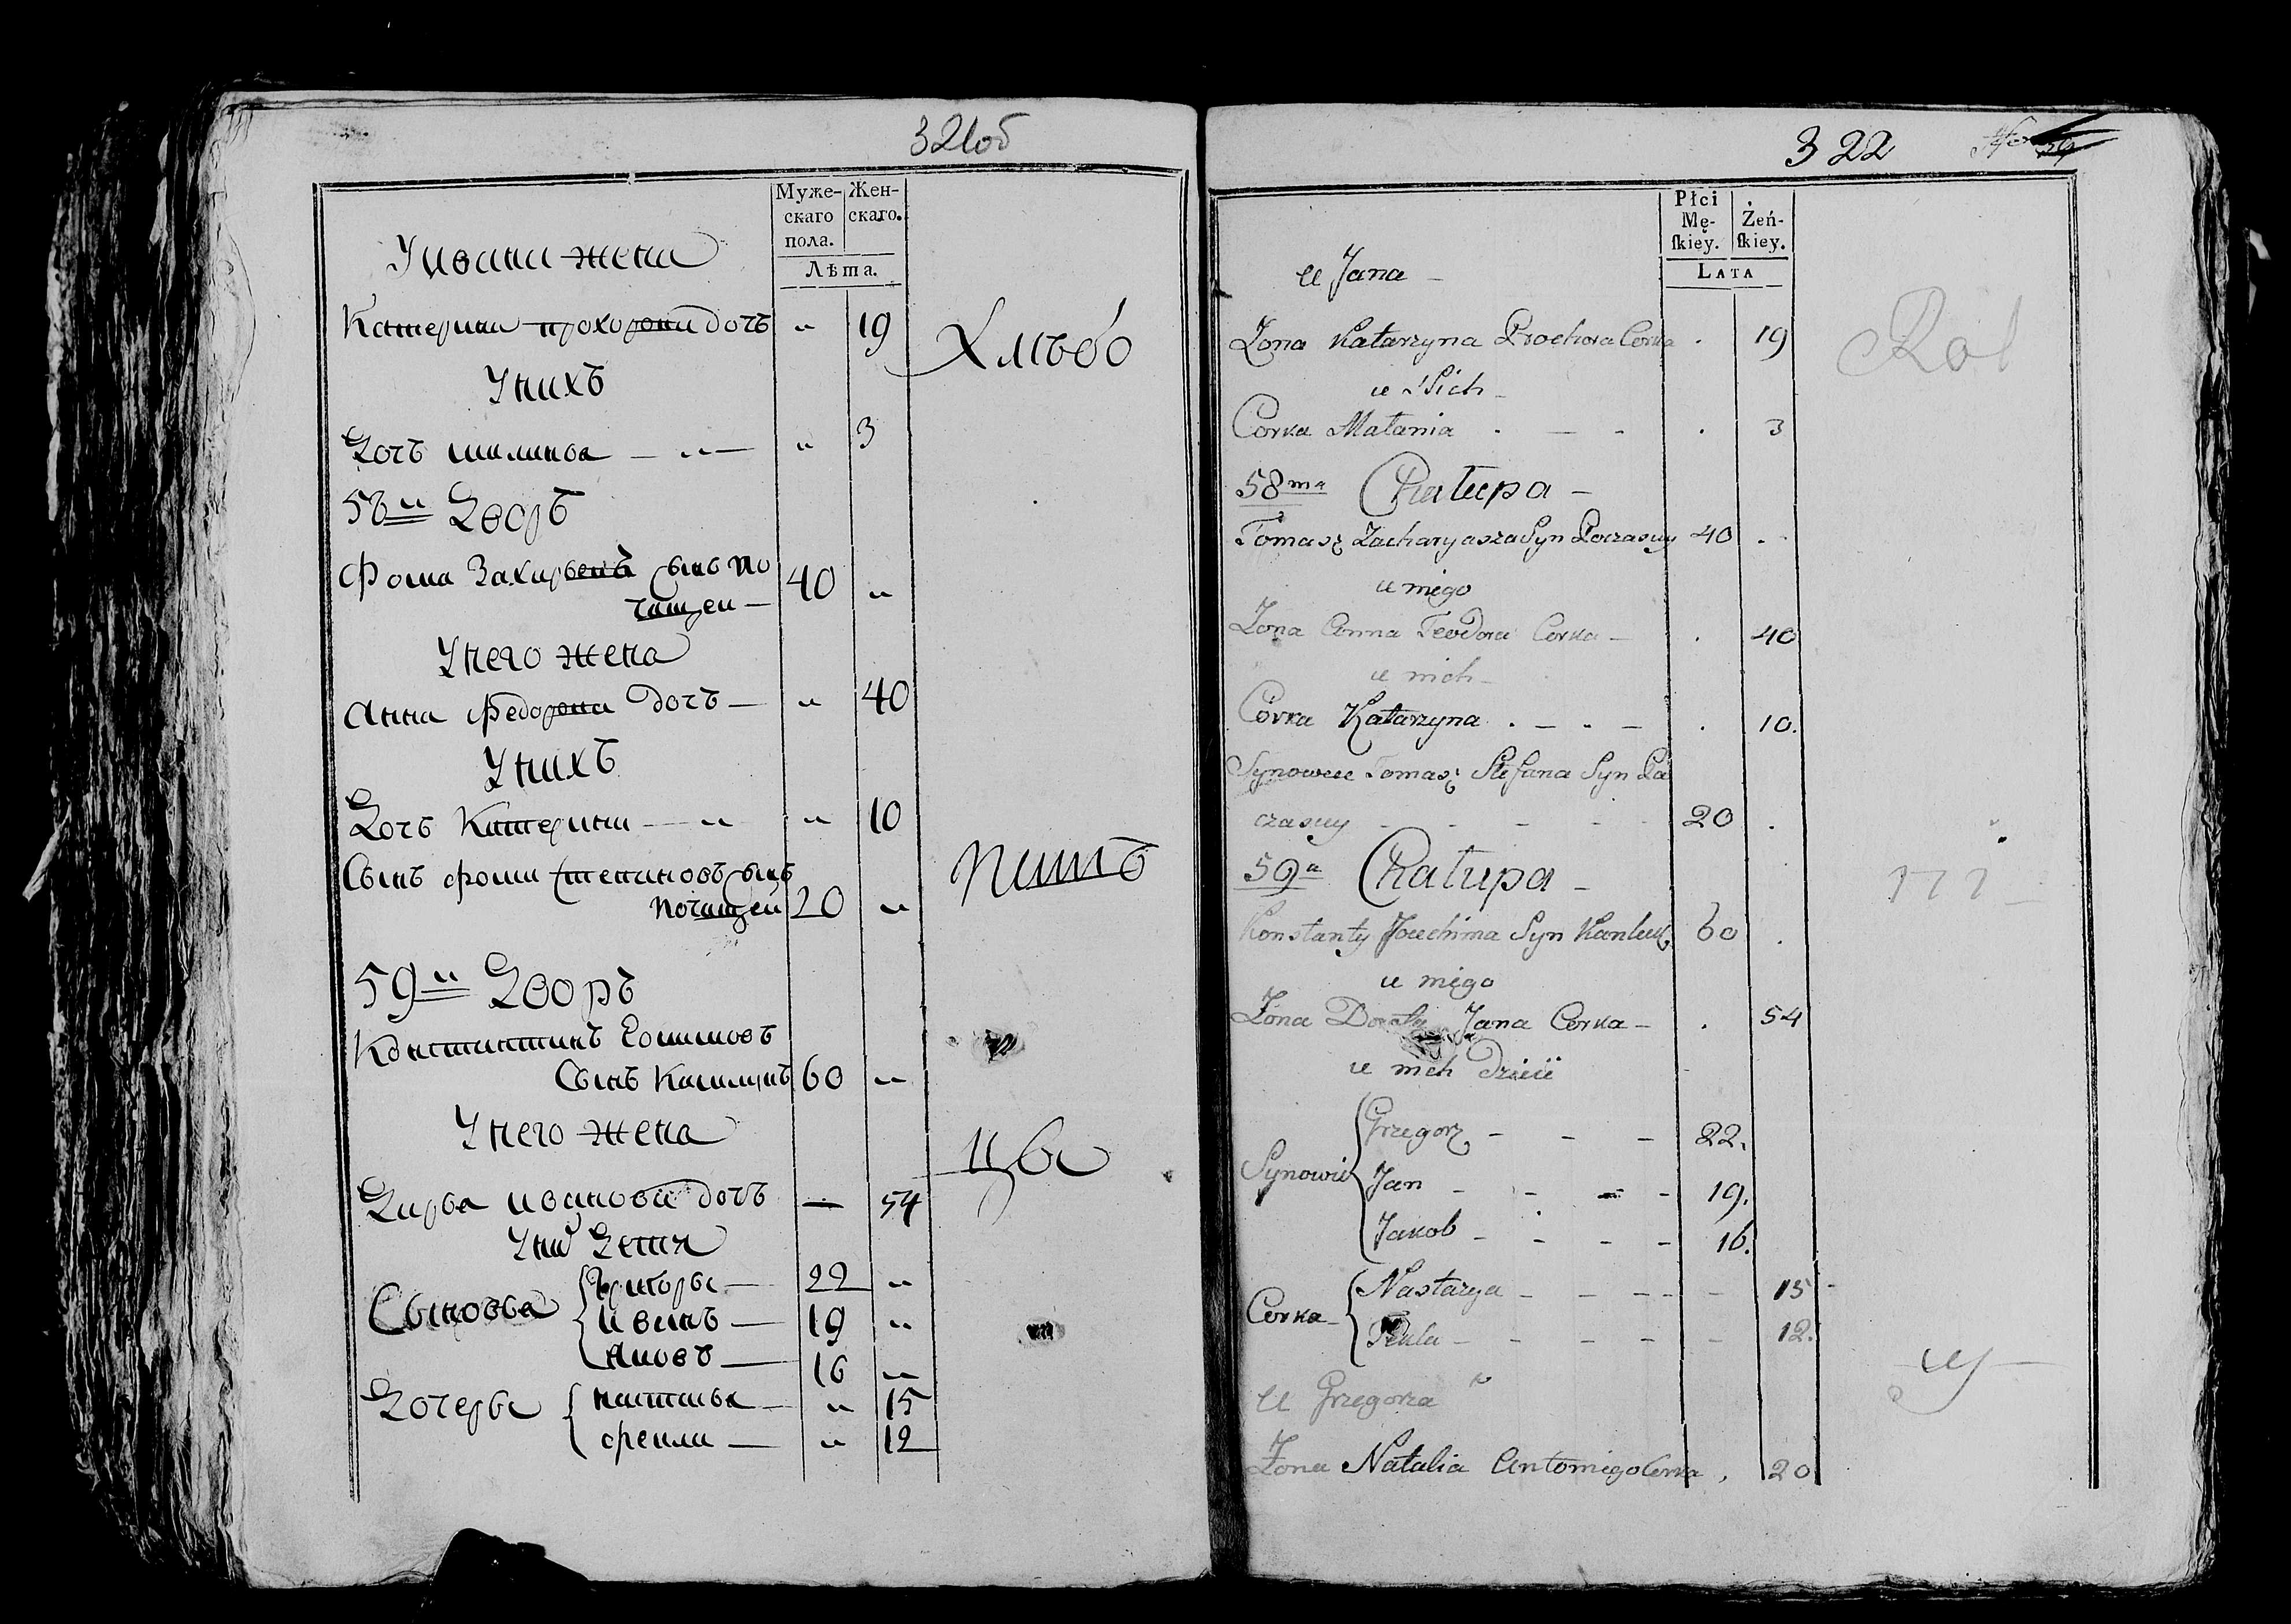 321об
Муже-
скаго
пола.
Жен-
скаго.
Лѣта.
У Ивана жена
Катерина прохорова дочь " 19
Хлѣбо
У нихъ
Дочь маланья — " — " 3
58й Дворъ
Фома Захарьевъ сынъ по
чащей — 40 "
У него жена
Анна федорова дочь — " 40
У нихъ
Дочь Катерина — " " 10
Сынъ фомы степановъ сынъ
почащей 20 "
пашъ
59й Дворъ
Констинтинъ Еоимовъ
Сынъ 60 "
У него жена
Дарья иванова дочь — 54
У них Детя
Сыновья
Григорьи — 22 "
Иванъ — 19 "
Яковъ — 16 "
Дочерьи
настасья — " 15
фекла — " 12
322
Płci
Mę-
ſkiey.
Żeń-
ſkiey.
LATA
u Jana —
Żona Katarzyna Prochora Corka . 19
u Nich —
Corka Małania . — - . 3
58ma Chałupa —
Tomasz Zacharyasza Syn Poczasuy 40 . -
u niego
Żona Anna Teodora Corka — . 40
u nich —
Corka Katarzyna . — . — . 10.
Synowiec Tomasz Stefana Syn Pa
czasuy - - - - 20 .
59a Chałupa —
Konstanty Joachima Syn 60 .
u niego
Żona Jana Corka — . 54
u nich Dzieci
Synowie
Grzegorz - - - 22.
Jan - - - - 19.
Jakob - - - - 16.
Corka
Nastazya - - - - - 15
Tekla - - - - - 12.
u Grzegorza
Żona Natalia Antoniego Corka . 20